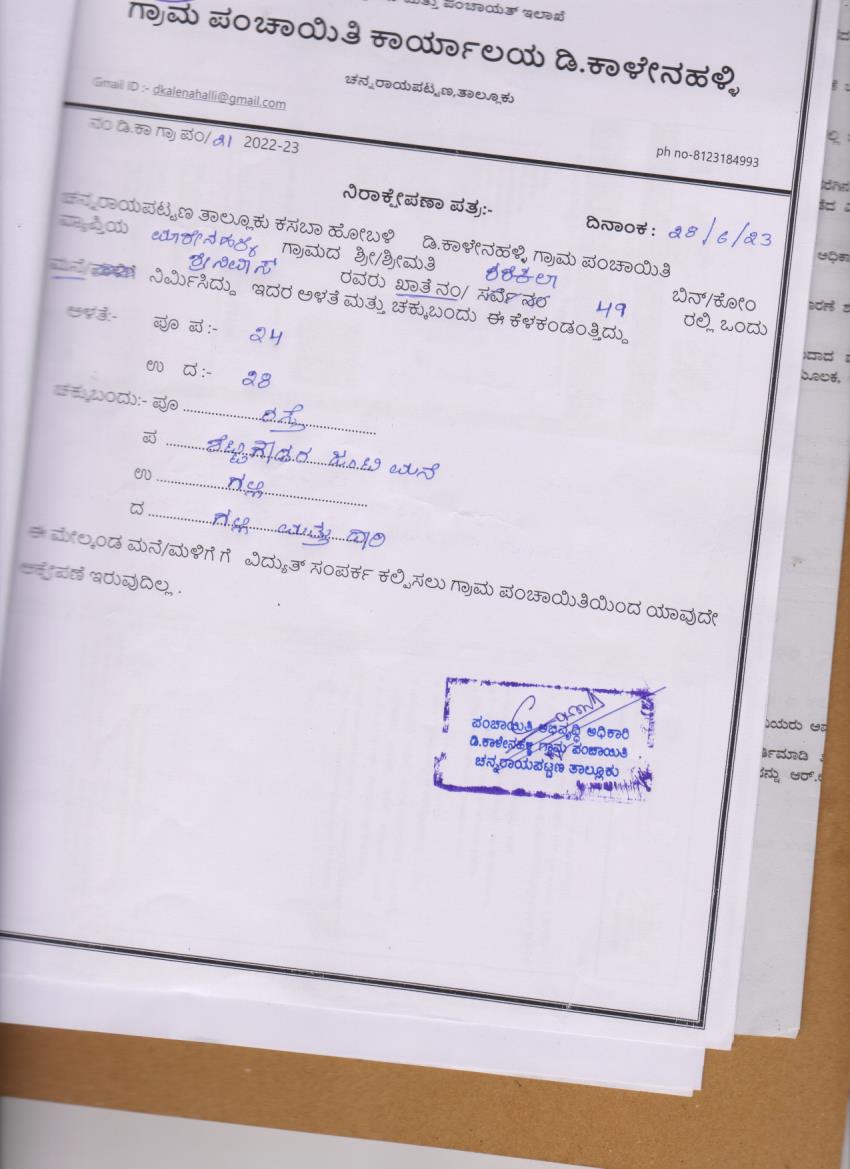 ಮತ್ತು ಪಂಚಾಯತ್ ಇಲಾಖೆ
ಗ್ರಾಮ ಪಂಚಾಯಿತಿ ಕಾರ್ಯಾಲಯ ಡಿ.ಕಾಳೇನಹಳ್ಳಿ
ಚನ್ನರಾಯಪಟ್ಟಣ,ತಾಲ್ಲೂಕು
Gmail ID :- dkalenahalli@gmail.com
ph no-8123184993
ನಂ ಡಿ.ಕಾ ಗ್ರಾ ಪಂ/ 21 2022-23
ನಿರಾಕ್ಷೇಪಣಾ ಪತ್ರ:-
ದಿನಾಂಕ : ೨೮/೬/೨೩
ಚನ್ನರಾಯಪಟ್ಟಣ ತಾಲ್ಲೂಕು ಕಸಬಾ ಹೋಬಳಿ ಡಿ.ಕಾಳೇನಹಳ್ಳಿ ಗ್ರಾಮ ಪಂಚಾಯಿತಿ
ವ್ಯಾಪ್ತಿಯ ಗ್ರಾಮದ ಶ್ರೀ/ಶ್ರೀಮತಿ ಶಶಿಕಲಾ ಬಿನ್/ಕೋಂ
ಶ್ರೀನಿವಾಸ್ ರವರು ಖಾತೆ ನಂ/ ಸರ್ವೆ ನಂ 49 ರಲ್ಲಿ ಒಂದು
ಮನೆ/ಮಳಿಗೆ ನಿರ್ಮಿಸಿದ್ದು ಇದರ ಅಳತೆ ಮತ್ತು ಚಕ್ಕುಬಂದು ಈ ಕೆಳಕಂಡಂತ್ತಿದ್ದು
ಅಳತೆ:- ಪೂ ಪ :- ೨೪
ಉ ದ :- ೨೮
ಚಕ್ಕುಬಂದು:- ಪೂ ರಸ್ತೆ
ಪ ಶೆಟ್ಟಿಗೌಡರ ಜಂಟಿ ಮನೆ
ಉ ಗಲ್ಲಿ
ದ ಗಲ್ಲಿ ಮತ್ತು ದಾರಿ
ಈ ಮೇಲ್ಕಂಡ ಮನೆ/ಮಳಿಗೆ ಗೆ ವಿದ್ಯುತ್ ಸಂಪರ್ಕ ಕಲ್ಪಿಸಲು ಗ್ರಾಮ ಪಂಚಾಯಿತಿಯಿಂದ ಯಾವುದೇ
ಆಕ್ಷೇಪಣೆ ಇರುವುದಿಲ್ಲ .
ಪಂಚಾಯಿತಿ ಅಭಿವೃದ್ಧಿ ಅಧಿಕಾರಿ
ಡಿ.ಕಾಳೇನಹಳ್ಳಿ ಗ್ರಾಮ ಪಂಚಾಯಿತಿ
ಚನ್ನರಾಯಪಟ್ಟಣ ತಾಲ್ಲೂಕು